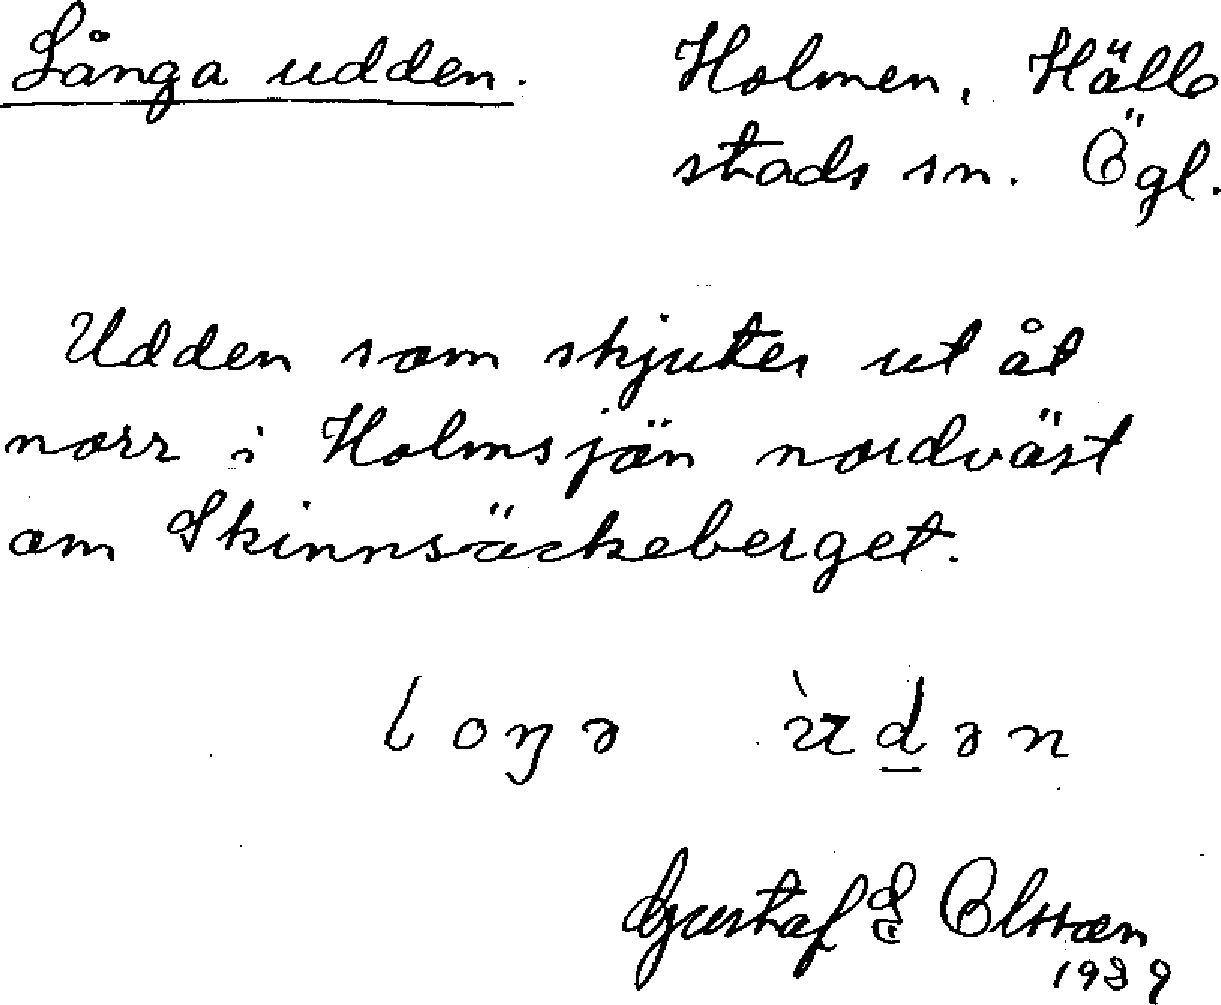 Långa udden. Holmen, Häll-
stads sn. Ögl.
Udden som skjuter ut åt
norr i Holmsjön nordväst
om Skinnsäckeberget.
loŋə ùdən
Gustaf E Olsson
1939